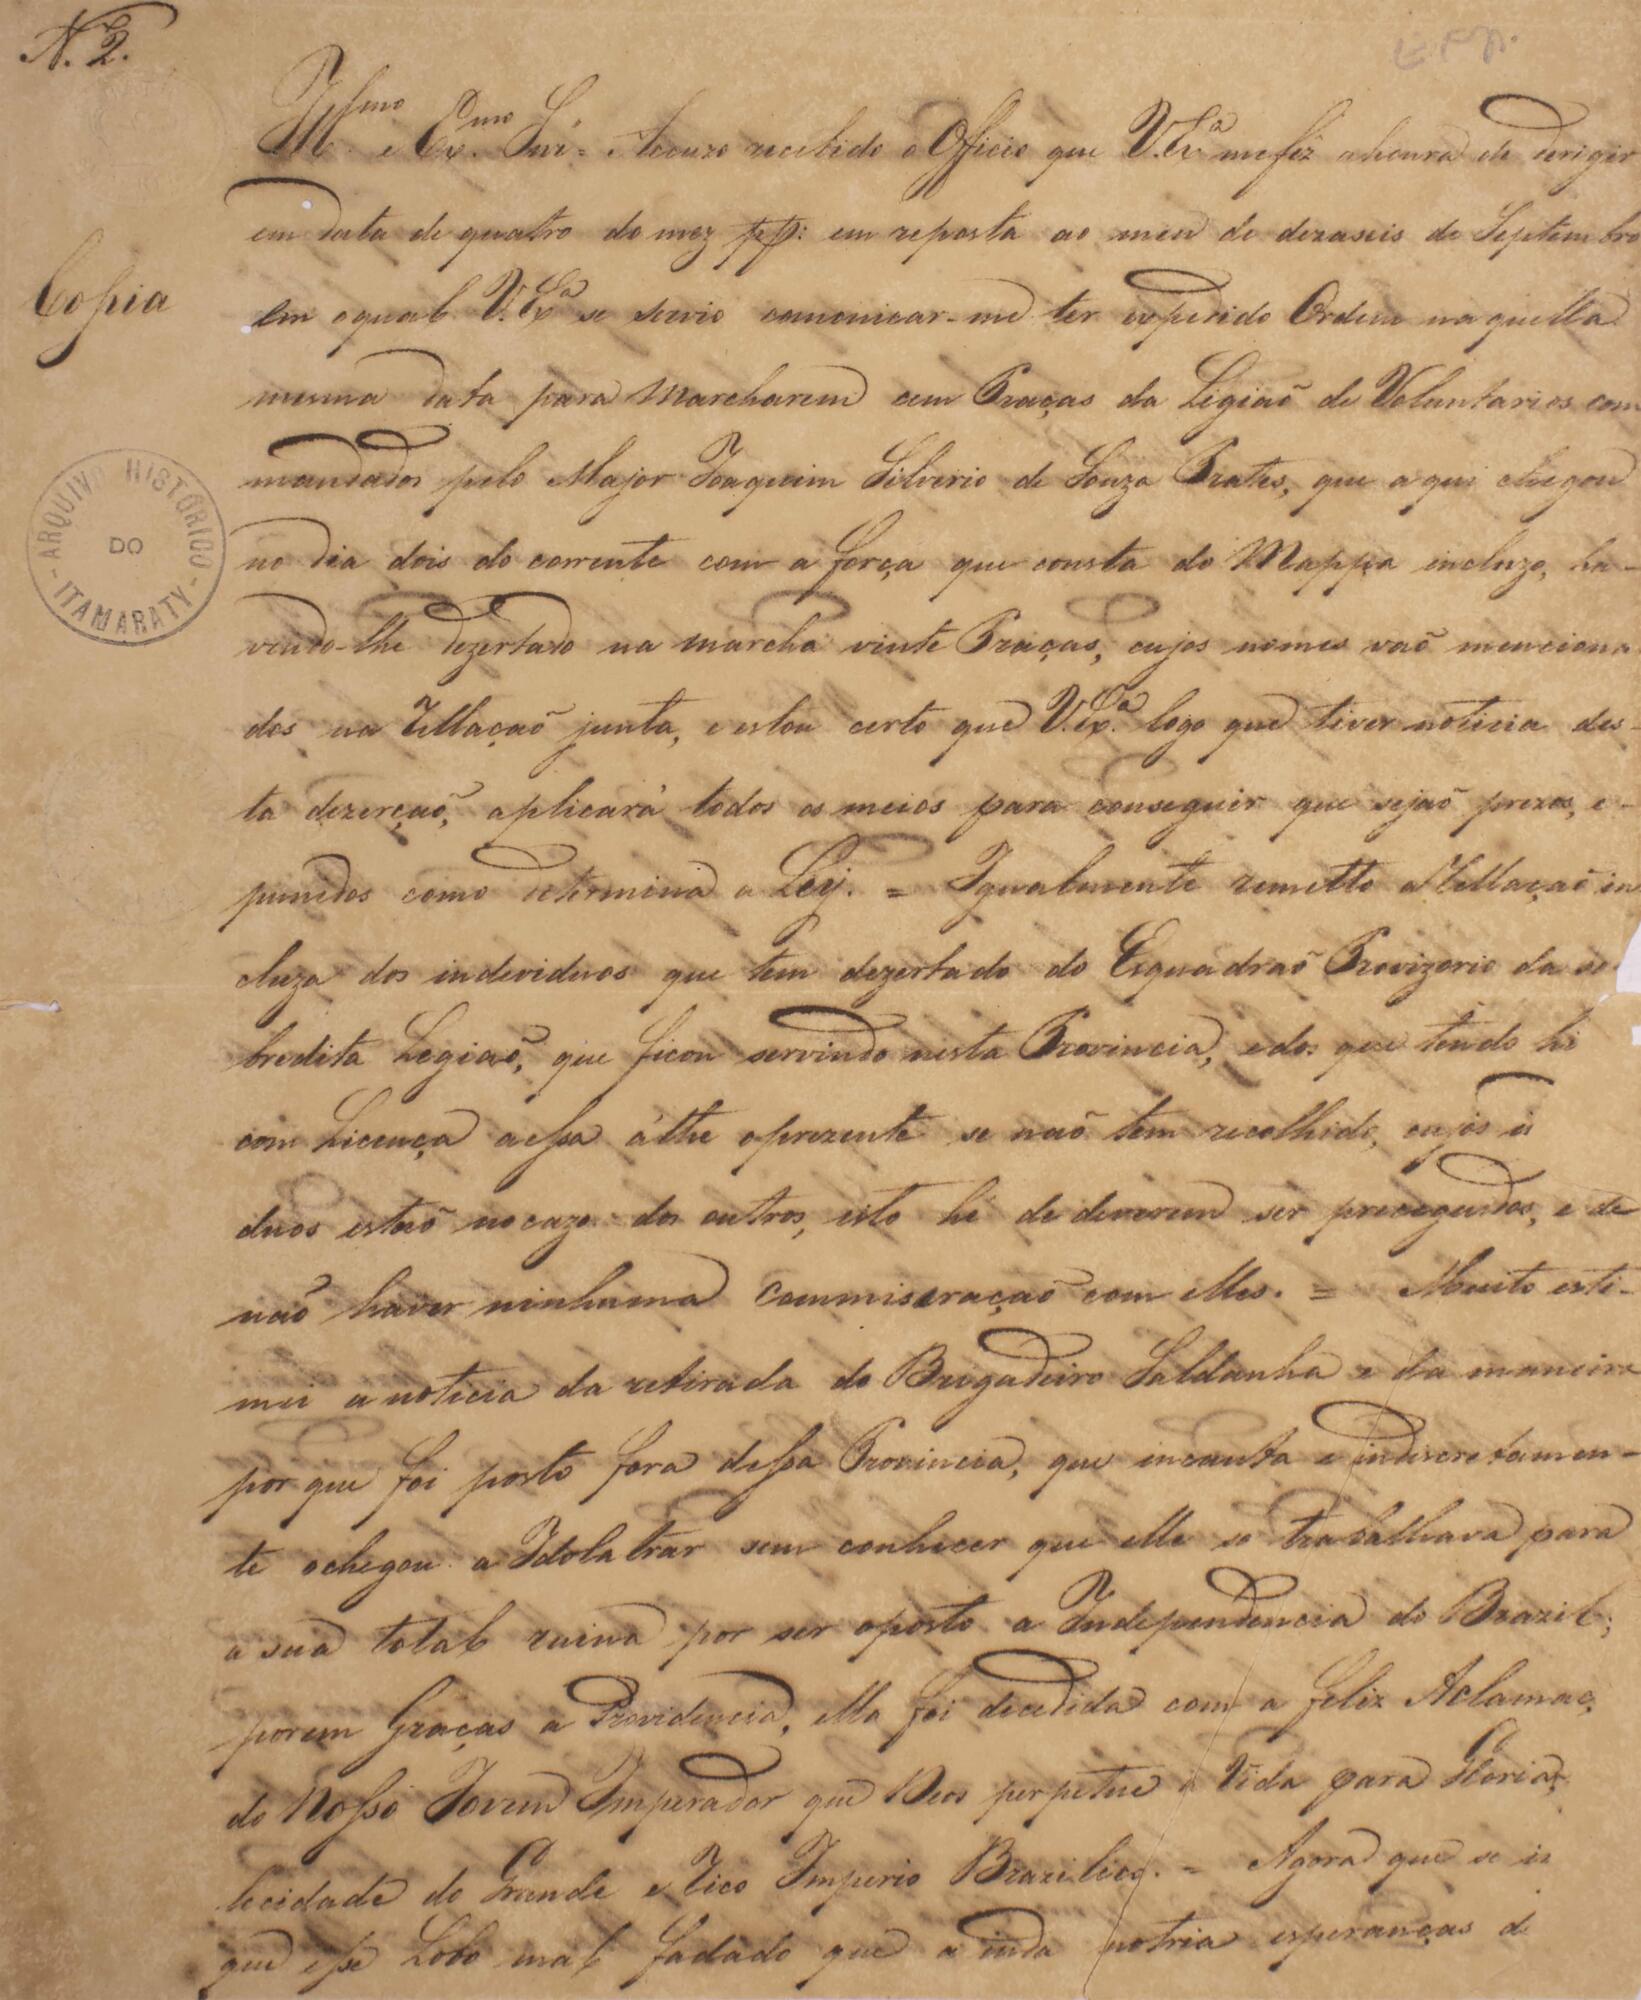 N. 2.
Illmo e Exmo Snr = Accuzo recebido o Officio que V. Exa me fez a honra de derigir
em data de quatro do mez pp: em reposta ao meu de dezaseis de Septembro
Copia
em o qual V. Exa se servio comonicar-me ter expedido Ordem naquella
mesma data para Marcharem cem Praças da Legiaõ de Voluntarios com
mandados pelo Major Joaquim Silverio de Souza Prates, que aqui chegou
ARQUIVO HISTORICO
DO
ITAMARATY
no dia dois do corrente com a força que consta do Mappa incluzo, ha-
vendo-lhe dezertado na marcha vinte Praças, cujos nomes vaõ menciona
dos na Rellaçaõ junta, e estou certo que V. Exa. logo que tiver noticia des-
ta dezerçaõ, aplicará todos os meios para conseguir que sejaõ prezos, e-
punedos como determina a Ley. = Igualmente remetto a Rellaçaõ in
cluza dos individuos que tem dezertado do Esquadraõ Provizorio da so
bredita Legiaõ, que ficou servindo nesta Provincia, e dos que tendo hi
com Licença a essa áthe o prezente se naõ tem recolhido, cujos in
duos estaõ no cazo dos outros, isto hé de deverem ser preceguidos, e de
naõ haver ninhuma Commiseraçaõ com elles. = Muito esti-
mei a noticia da retirada do Brigadeiro Saldanha e da maneira
por que foi posto fora dessa Provincia, que incauta e indiscretamen-
te o chegou a Idolatrar sem conhecer que elle so trabalhava para
a sua total ruina por ser oposto a Independencia do Brazil;
porem Graças a Providencia, ella foi decedida com a feliz Aclamac,
do Nosso Joven Imperador que Deos perpetue a Vida para Gloria,
lecidade do Grande e Rico Imperio Brazilico. = Agora que se in
que esse Lobo mal fadado que ainda notria esperanças de